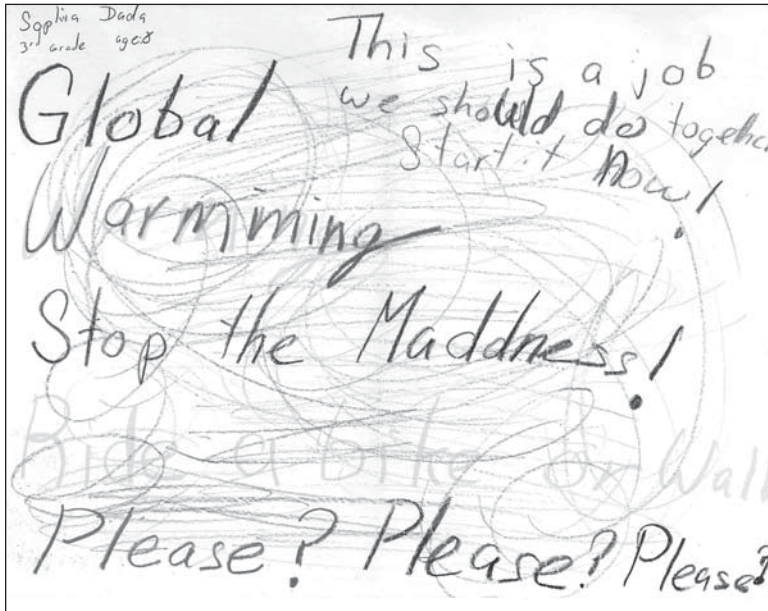 Sophia Dada
3rd Grade age:8
This is a job
we should do together
Start it Now!
Global
Warmming
Stop the Maddness!
Ride a bike or Walk
Please? Please? Please?